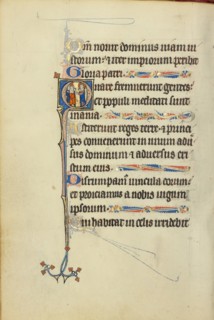 Qm nouit dominus uiam iu
storum: & iter impiorum peribit
Gloria patri.
Quare fremuerunt gentes:
et populi meditati sunt
inania.
Astiterunt reges terre: & princi
pes conuenerunt in unum aduer
sus dominum & aduersus cri
stum eius.
Dirumpamus uincula eorum:
et proiciamus a nobis iugum
ipsorum.
Qui habitat in celis irridebit